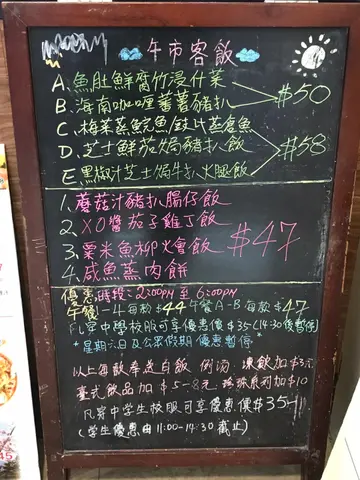 午市客飯
A.魚肚鮮腐竹浸什菜
B.海南咖喱薯薯豬扒
$50
C.梅菜蒸鯇魚/豉汁蒸倉魚
D.芝士鮮茄焗豬扒飯
$58
E.黑椒汁芝士焗牛扒火腿飯
1.蘑菇汁豬扒腸仔飯
2.XO醬茄子雞丁飯
3.粟米魚柳火會飯
$47
4.咸魚蒸肉餅
優惠時段:2:00PM至6:00PM
午餐1-4每款$44午餐A-B每款$47
凡穿中學校服可享優惠價$35(14:30後暫停)
*星期六日及公眾假期優惠暫停*
以上每款奉送白飯 例湯 凍飲加$3元
臺式飲品加$5-8元 珍珠系列加$10
凡穿中學生校服可享優惠價$35-
(學生優惠由11:00-14:30截止)